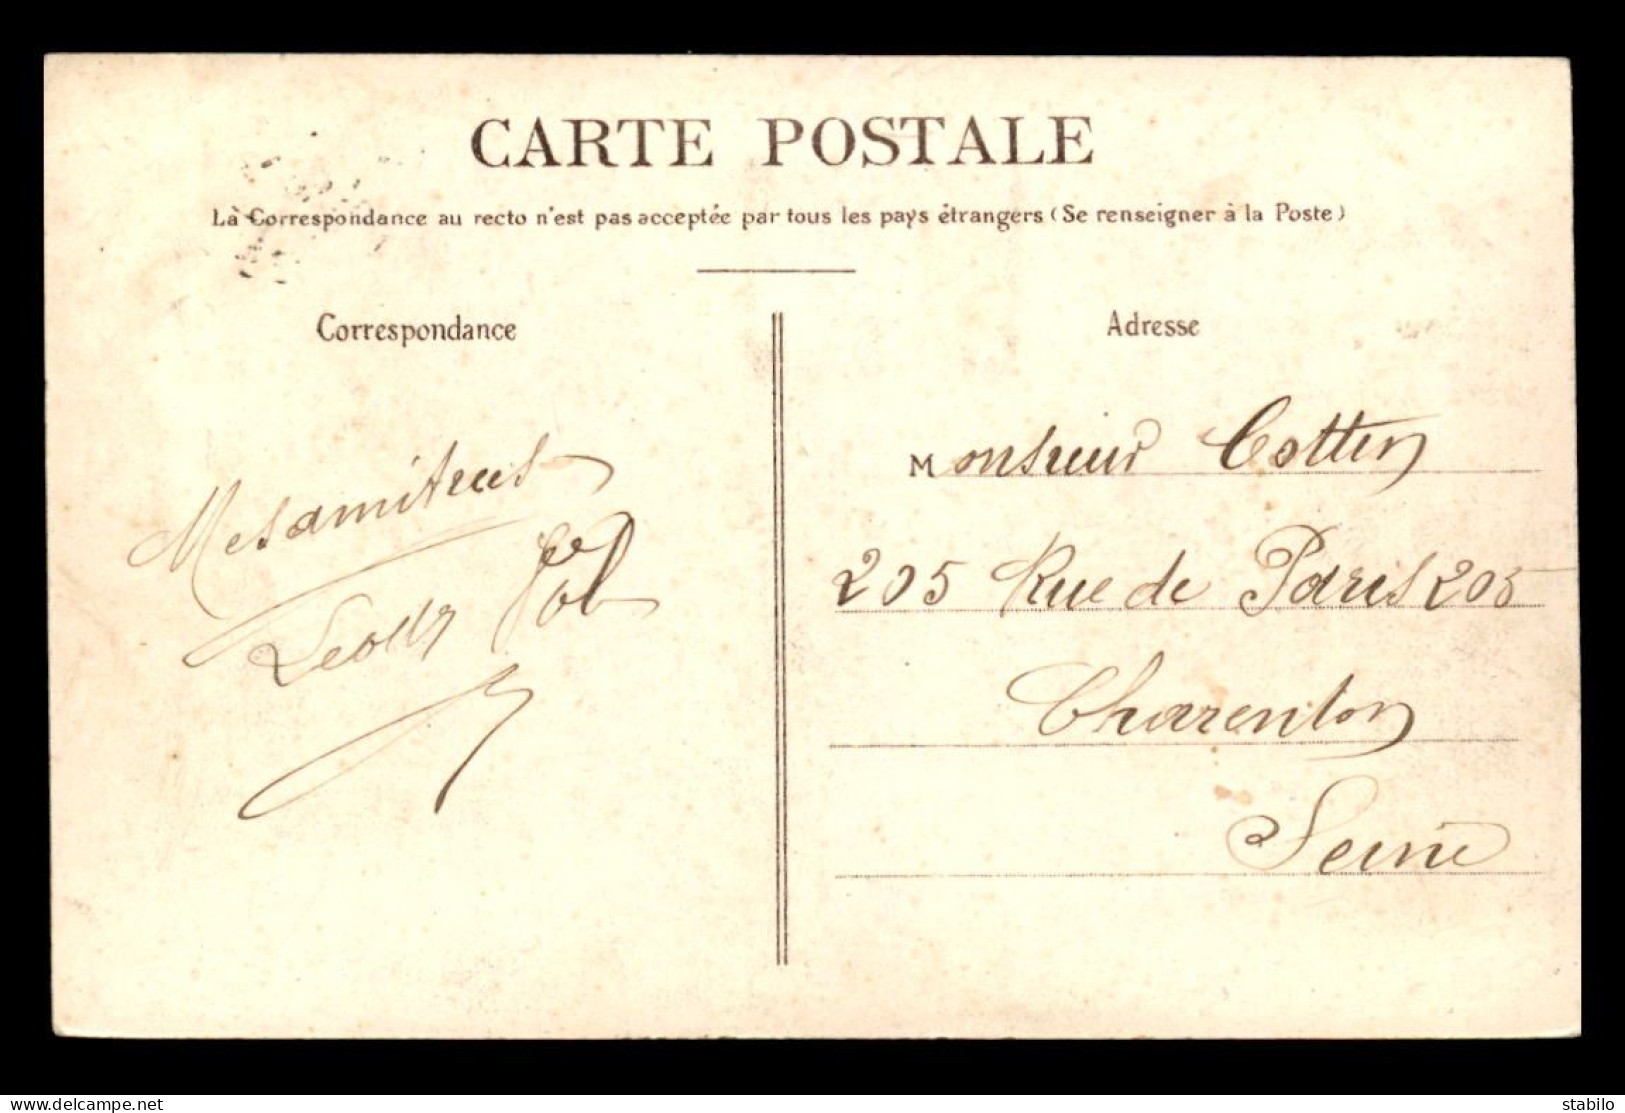 CARTE POSTALE
La Correspondance au recto n'est pas acceptée par tous les pays étrangers (Se renseigner à la Poste)
Correspondance
Mes amitiées
Adresse
Monsieur Cottin
205 Rue de Paris 205
Charenton
Seine
www.delcampe.net
stabilo